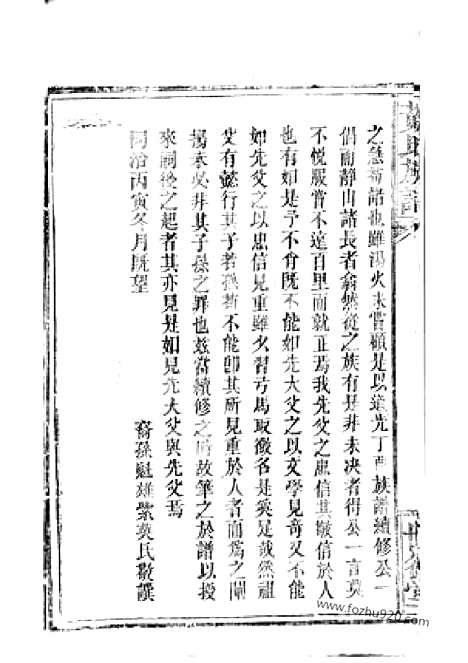 之急苟諾也雖湯火未嘗顧是以道光丁酉族譜續修公一
倡而靜山諸長者翕然從之族有是非未決者得公一言莫
不悅服嘗不遠百里而就正焉我先父之忠信其敬信於人
也有如是予不肖既不能如先大父之以文學見奇又不能
如先父之以忠信見重雖夕習弓馬取微名是奚足哉然祖
父有懿行其子若孫苟不能即其所見重於人者而為之闡
揚未必非其子孫之罪也茲當續修之時故筆之於譜以授
來嗣後之起者其亦見是如見先大父與先父焉
同治丙寅冬月既望
裔孫魁雄紫英氏敬譔
氏族譜
堂
www.fozhu920.com